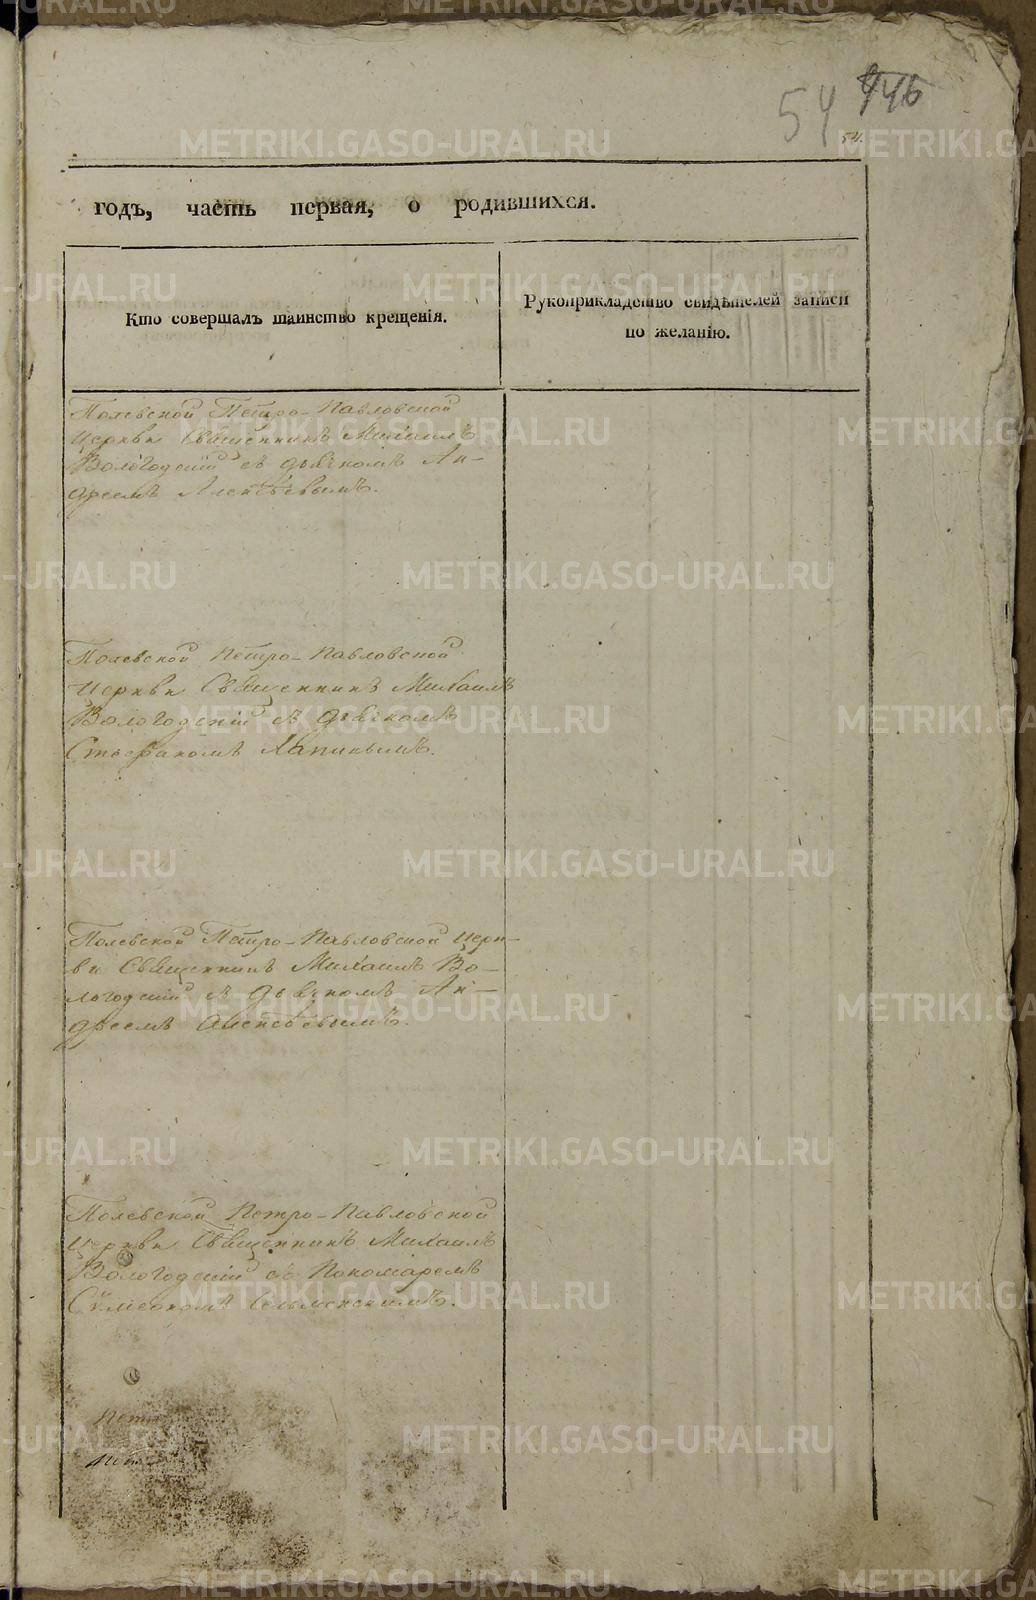 54 446
54.
годъ, часть первая, о родившихся.
Кто совершалъ таинство крещенія.
Рукоприкладство свидѣтелей записи
по желанію.
Полевской Петро-Павловской
Церкви Священникъ Михаилъ
Вологодскій съ дьячкомъ Ан-
дреемъ Алексѣевымъ.
Полевской Петро-Павловской
Церкви Священникъ Михаилъ
Вологодскій съ дьячкомъ
Стефаномъ
Полевской Петро-Павловской Церк-
ви Священникъ Михаилъ Во-
логодскій съ дьячкомъ Ан-
дреемъ Алексѣевымъ.
Полевской Петро-Павловской
Церкви Священникъ Михаилъ
Вологодскій съ Пономаремъ
Сѵмеономъ
METRIKI.GASO-URAL.RU